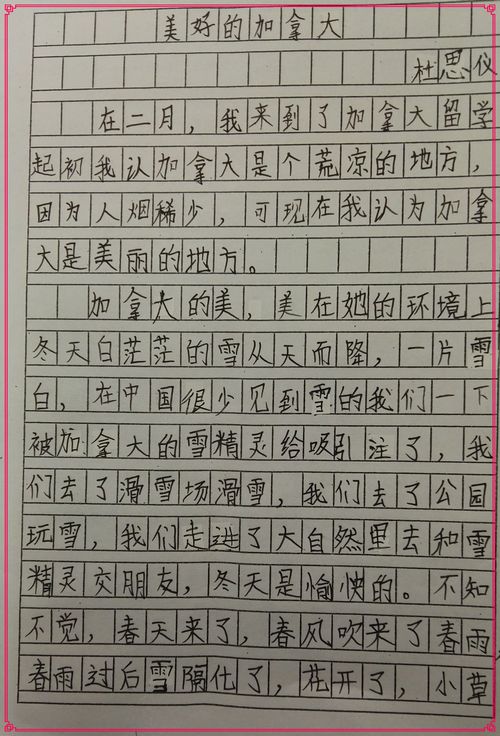 美好的加拿大
杜思仪
在二月，我来到了加拿大留学
起初我认加拿大是个荒凉的地方，
因为人烟稀少，可现在我认为加拿
大是美丽的地方。
加拿大的美，美在她的环境上
冬天白茫茫的雪从天而降，一片雪
白，在中国很少见到雪的我们一下
被加拿大的雪精灵给吸引注了，我
们去了滑雪场滑雪，我们去了公园
玩雪，我们走进了大自然里去和雪
精灵交朋友，冬天是愉快的。不知
不觉，春天来了，春风吹来了春雨
春雨过后雪隔化了，花开了，小草